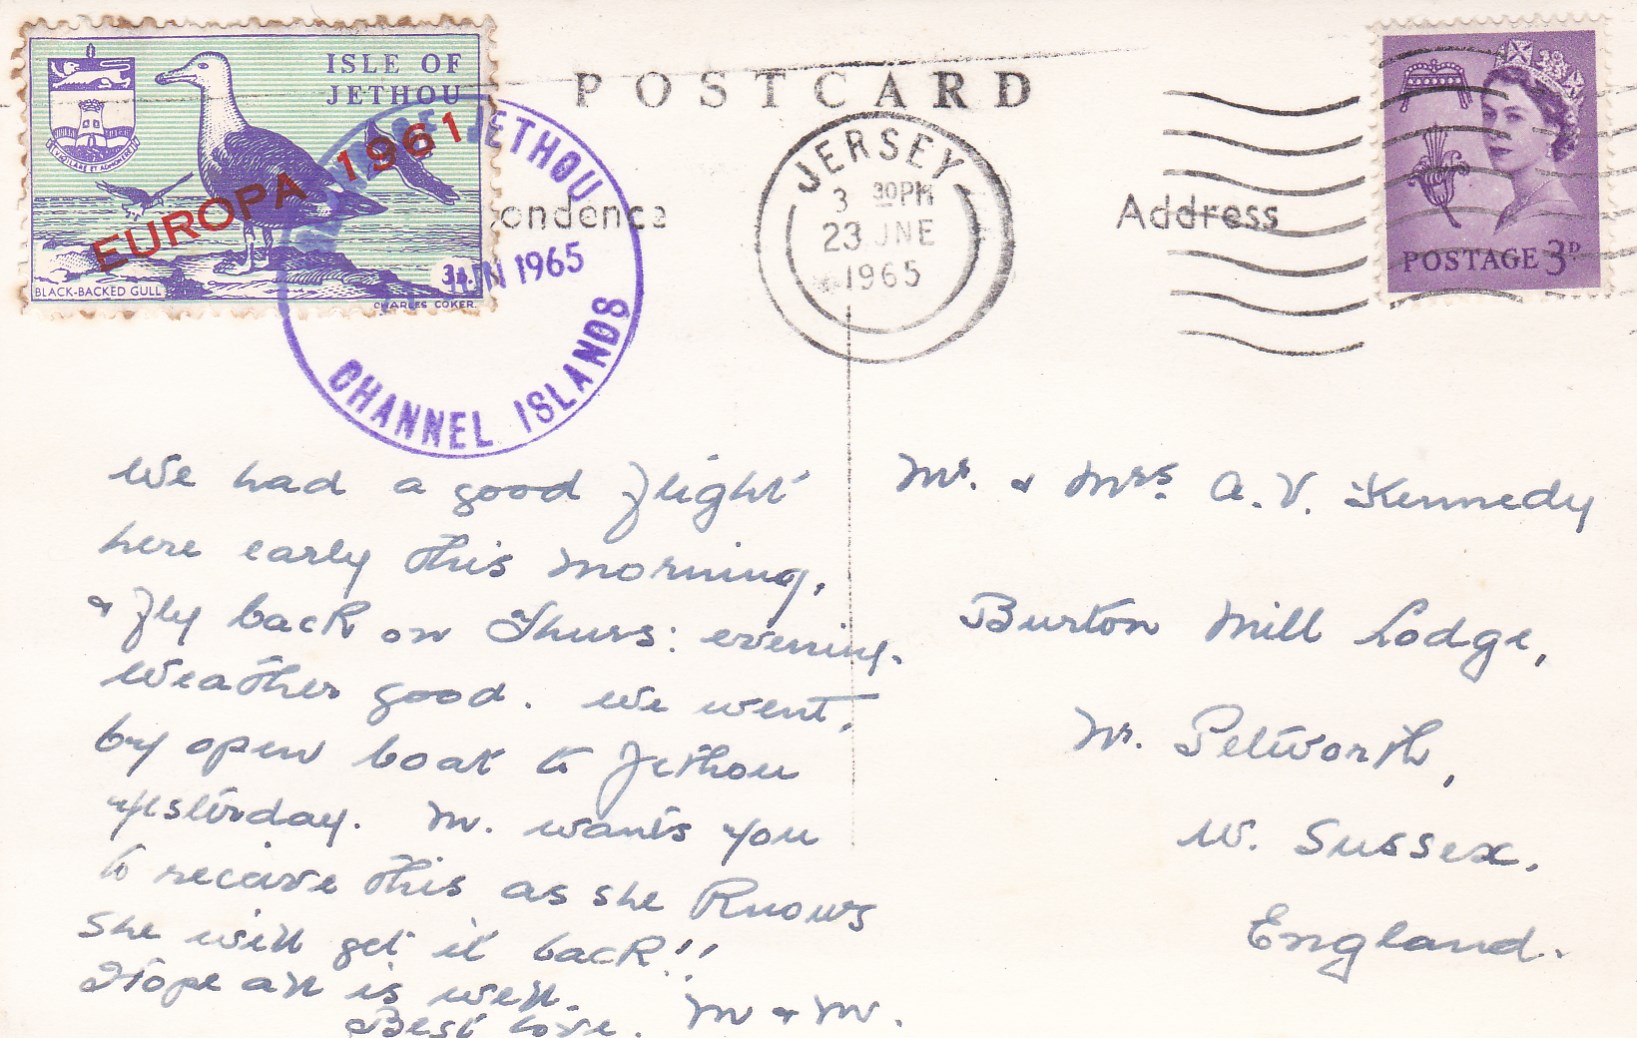 ISLE OF
JETHOU
EUROPA 1961
BLACK-BACKED GULL
CHARLES COKER
POSTCARD
JETHOU
JUN 1965
CHANNEL ISLANDS
ondence
JERSEY
3 30PM
23 JNE
1965
Address
POSTAGE 3D
We had a good flight
here early this morning,
& fly back on Thurs: evening.
Weather good. We went,
by open boat to Jethou
yesterday. M. wants you
to receive this as she knows
she will get it back!!
Hope all is well.
Best love. M & M.
Mr. & Mrs. A. V. Kennedy
Burton Mill Lodge,
Nr. Petworth,
W. Sussex.
England.